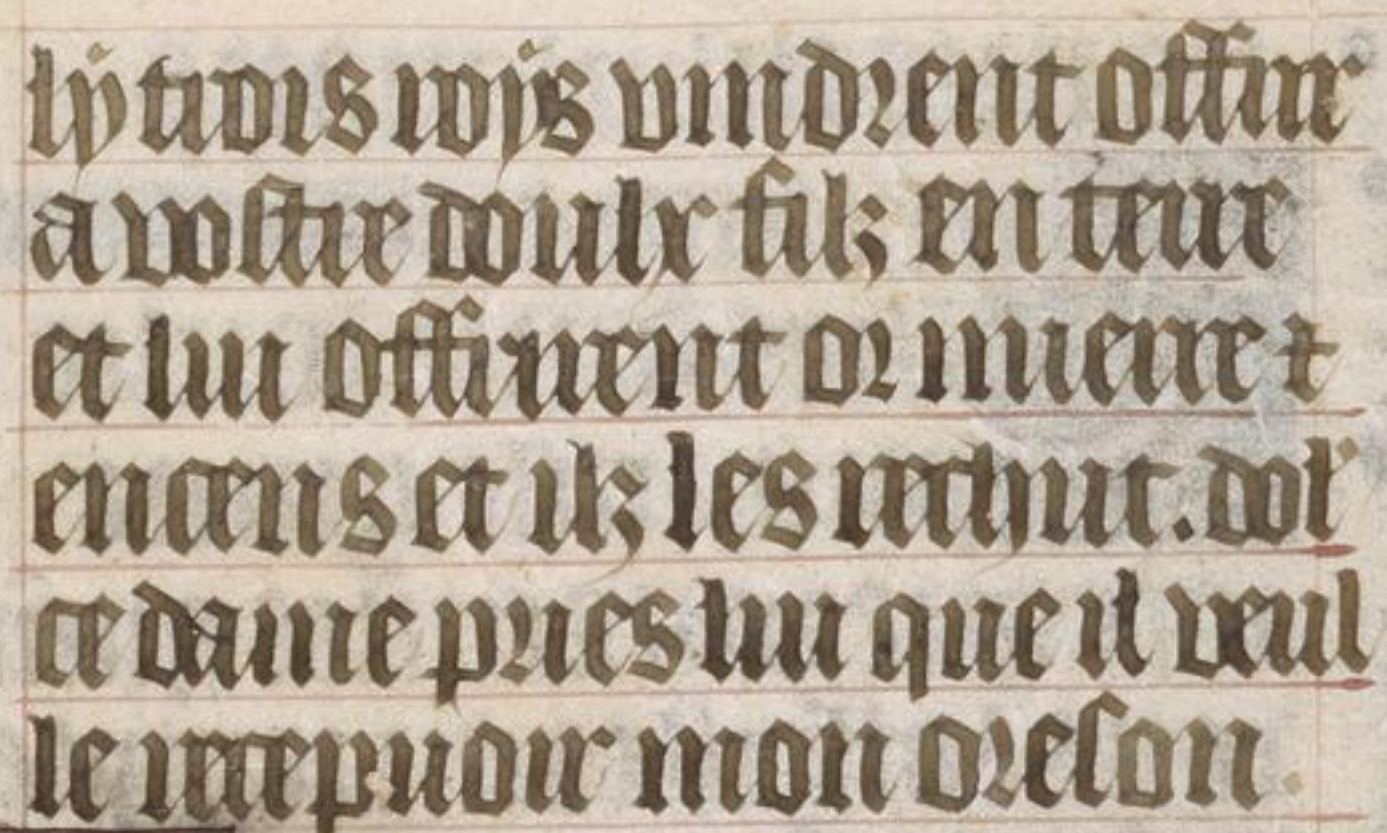 ly trois roys vindrent offrir
a vostre doulx filz en terre
et lui offrirent or mierre ⁊
encens et ilz les rechut. dol
ce dame pries lui que il veul
le recepuoir mon oreson